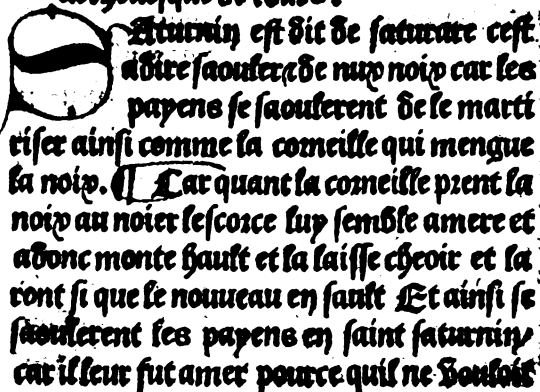 Saturnin est dit de saturare cest
adire saouler / de nux noix car les
payens se saoulerent de le marti
riser ainsi comme la corneille qui mengue
la noix. ¶ Car quant la corneille prent la
noix au noier lescorce luy semble amere et
adonc monte hault et la laisse cheoir et la
ront si que le nouueau en sault Et ainsi se
saoulerent les payens en saint saturnin/
car il leur fut amer pource quil ne vouloit